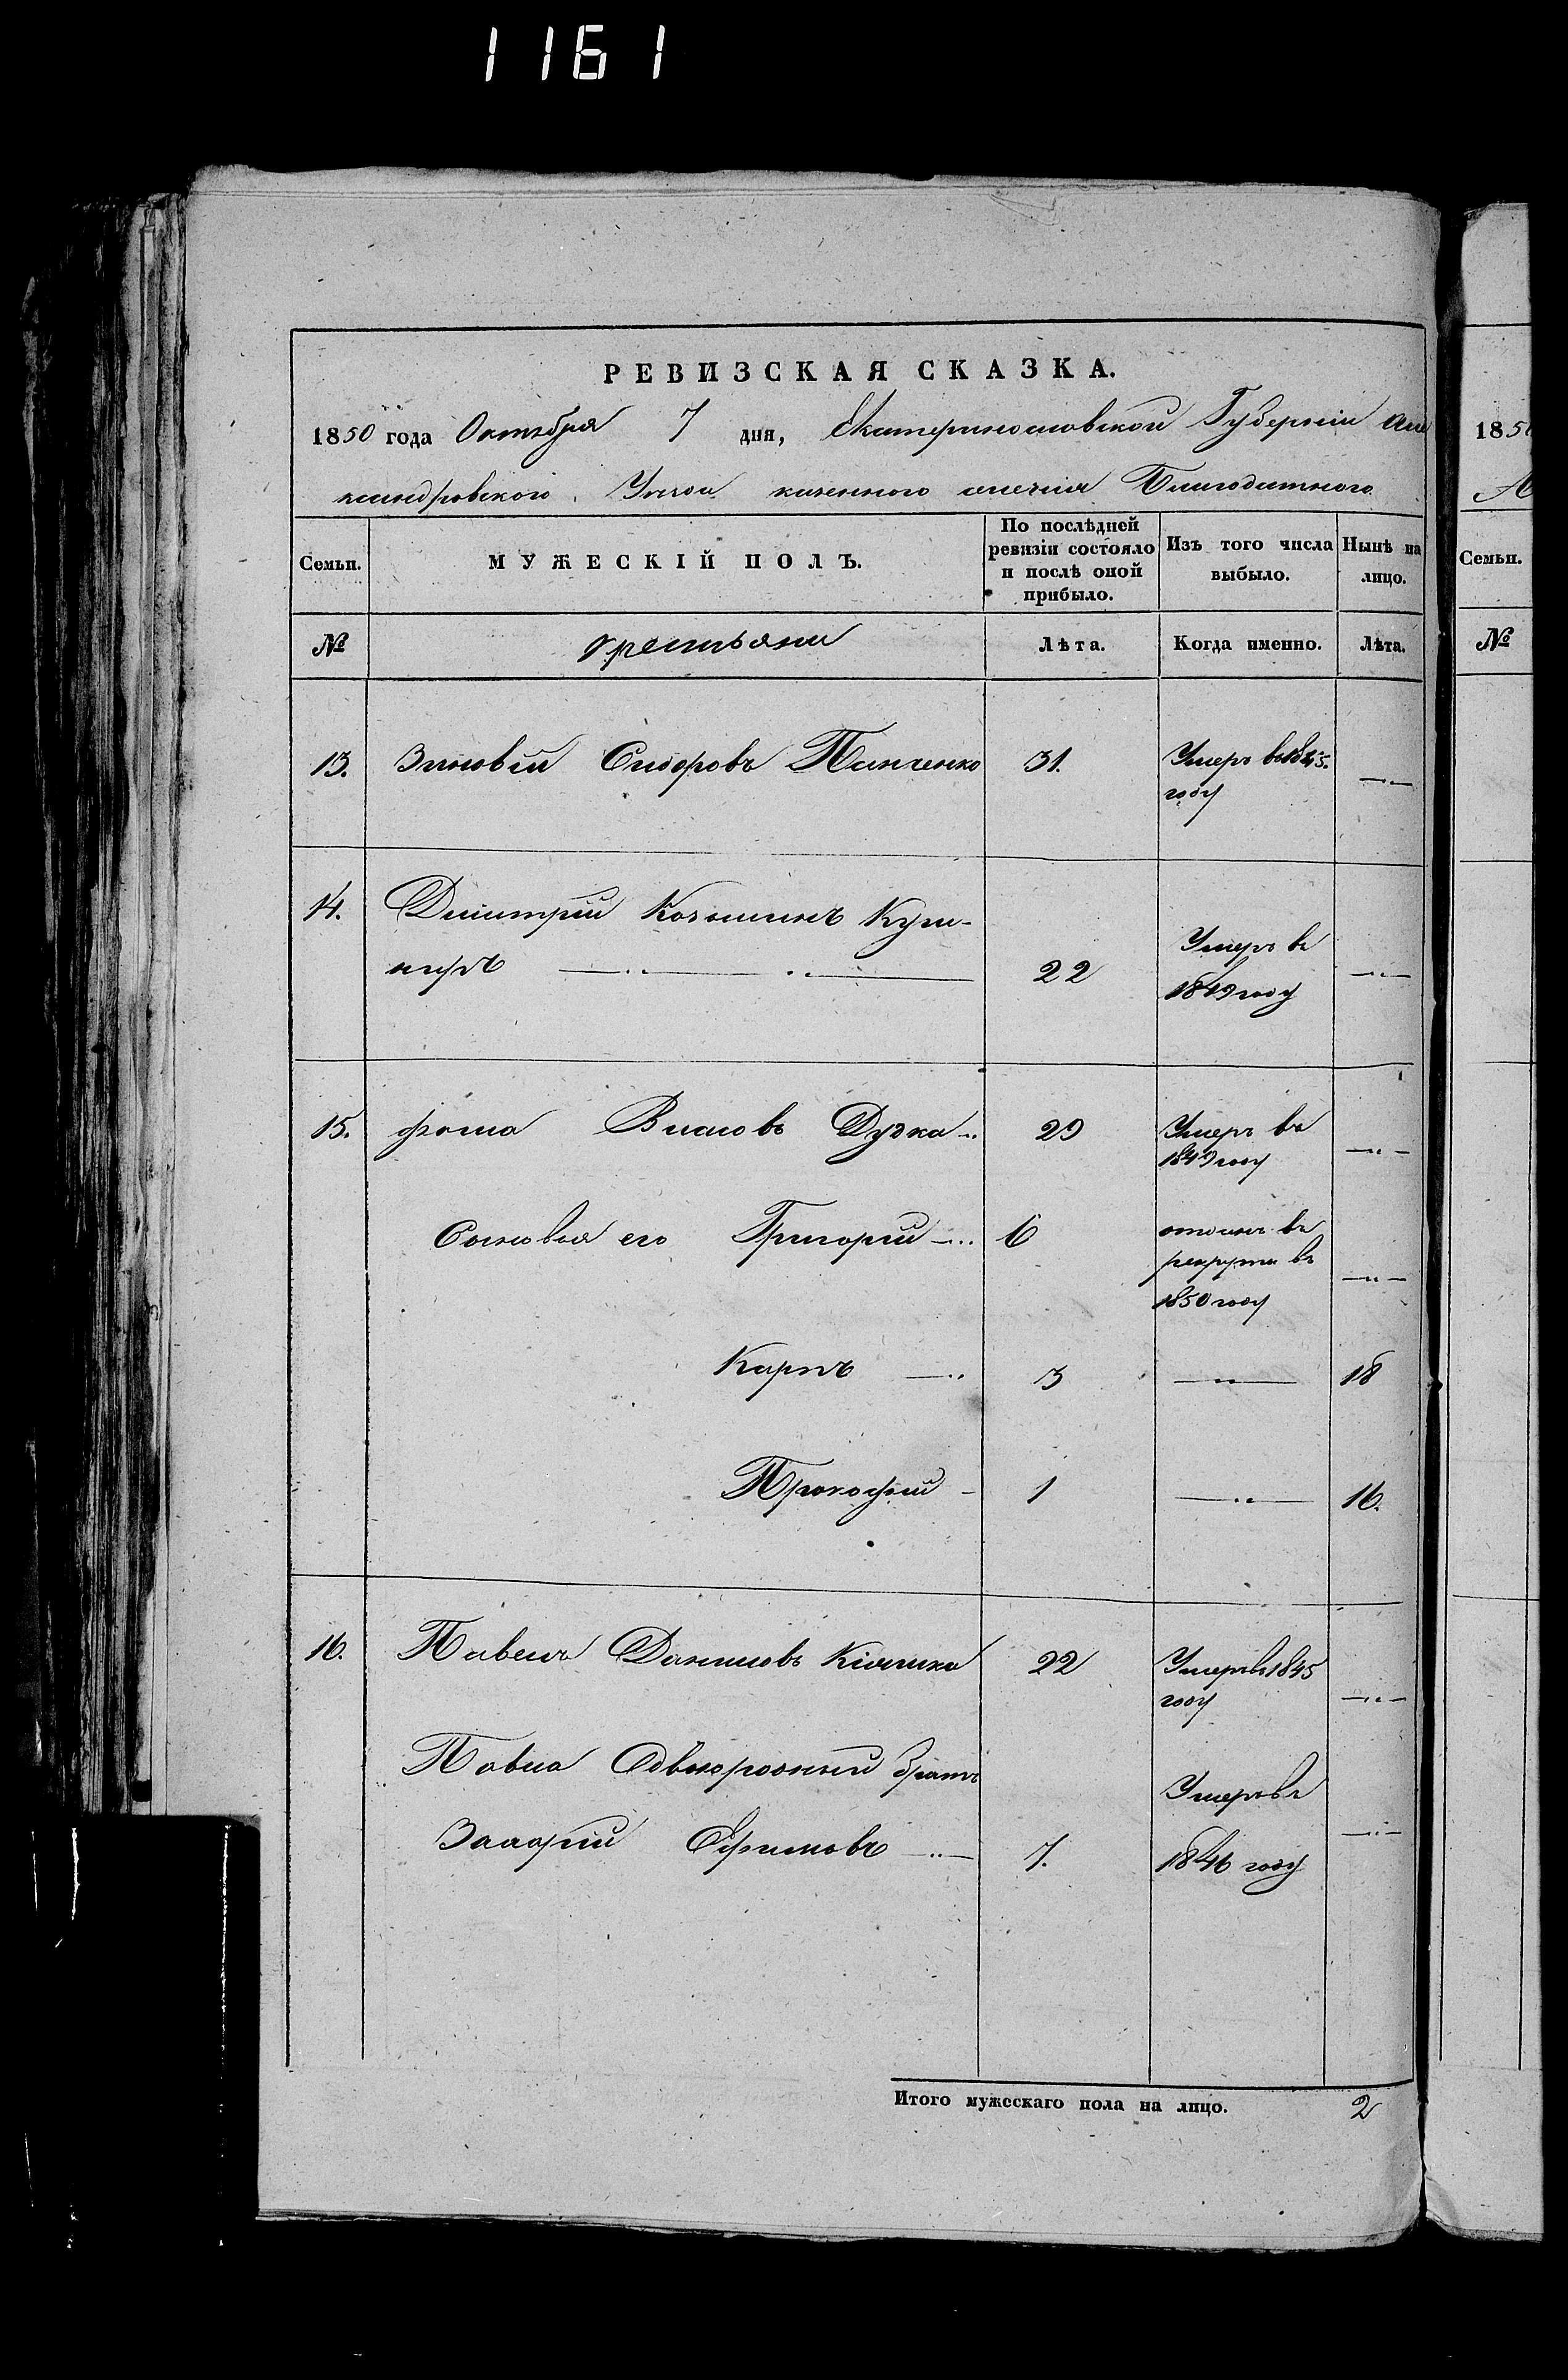 1161
РЕВИЗСКАЯ СКАЗКА.
1850 года Октября 7 дня, Екатеринославской Губерніи Але
ксандровскаго Уезда казенного селенія Благодатного
Семьи. МУЖЕСКІЙ ПОЛЪ. По послѣдней ревизіи состояло и послѣ оной прибыло. Изъ того числа выбыло. Нынѣ на лицо.
№ крестьяни Лѣта. Когда именно. Лѣта.
13. Зиновій Сидоровъ Панченко 31. Умеръ въ 1845.
году
14. Дмитрій Козминъ Куш-
ниръ 22 Умеръ въ
1849 году
15. Фома Власовъ Дучка 29 Умеръ въ
1849 году
Сыновья его Григорій 6 отданъ въ
рекруты въ
1850 году
Карпъ 3 18
Прокофій 1 16.
16. Павелъ Даниловъ 22 Умеръ въ 1845
году
Павла Двоюродный братъ
Захарій Ефимовъ 7. Умеръ въ
1846 году
Итого мужескаго пола на лицо. 2
1850
А
Семьи.
№